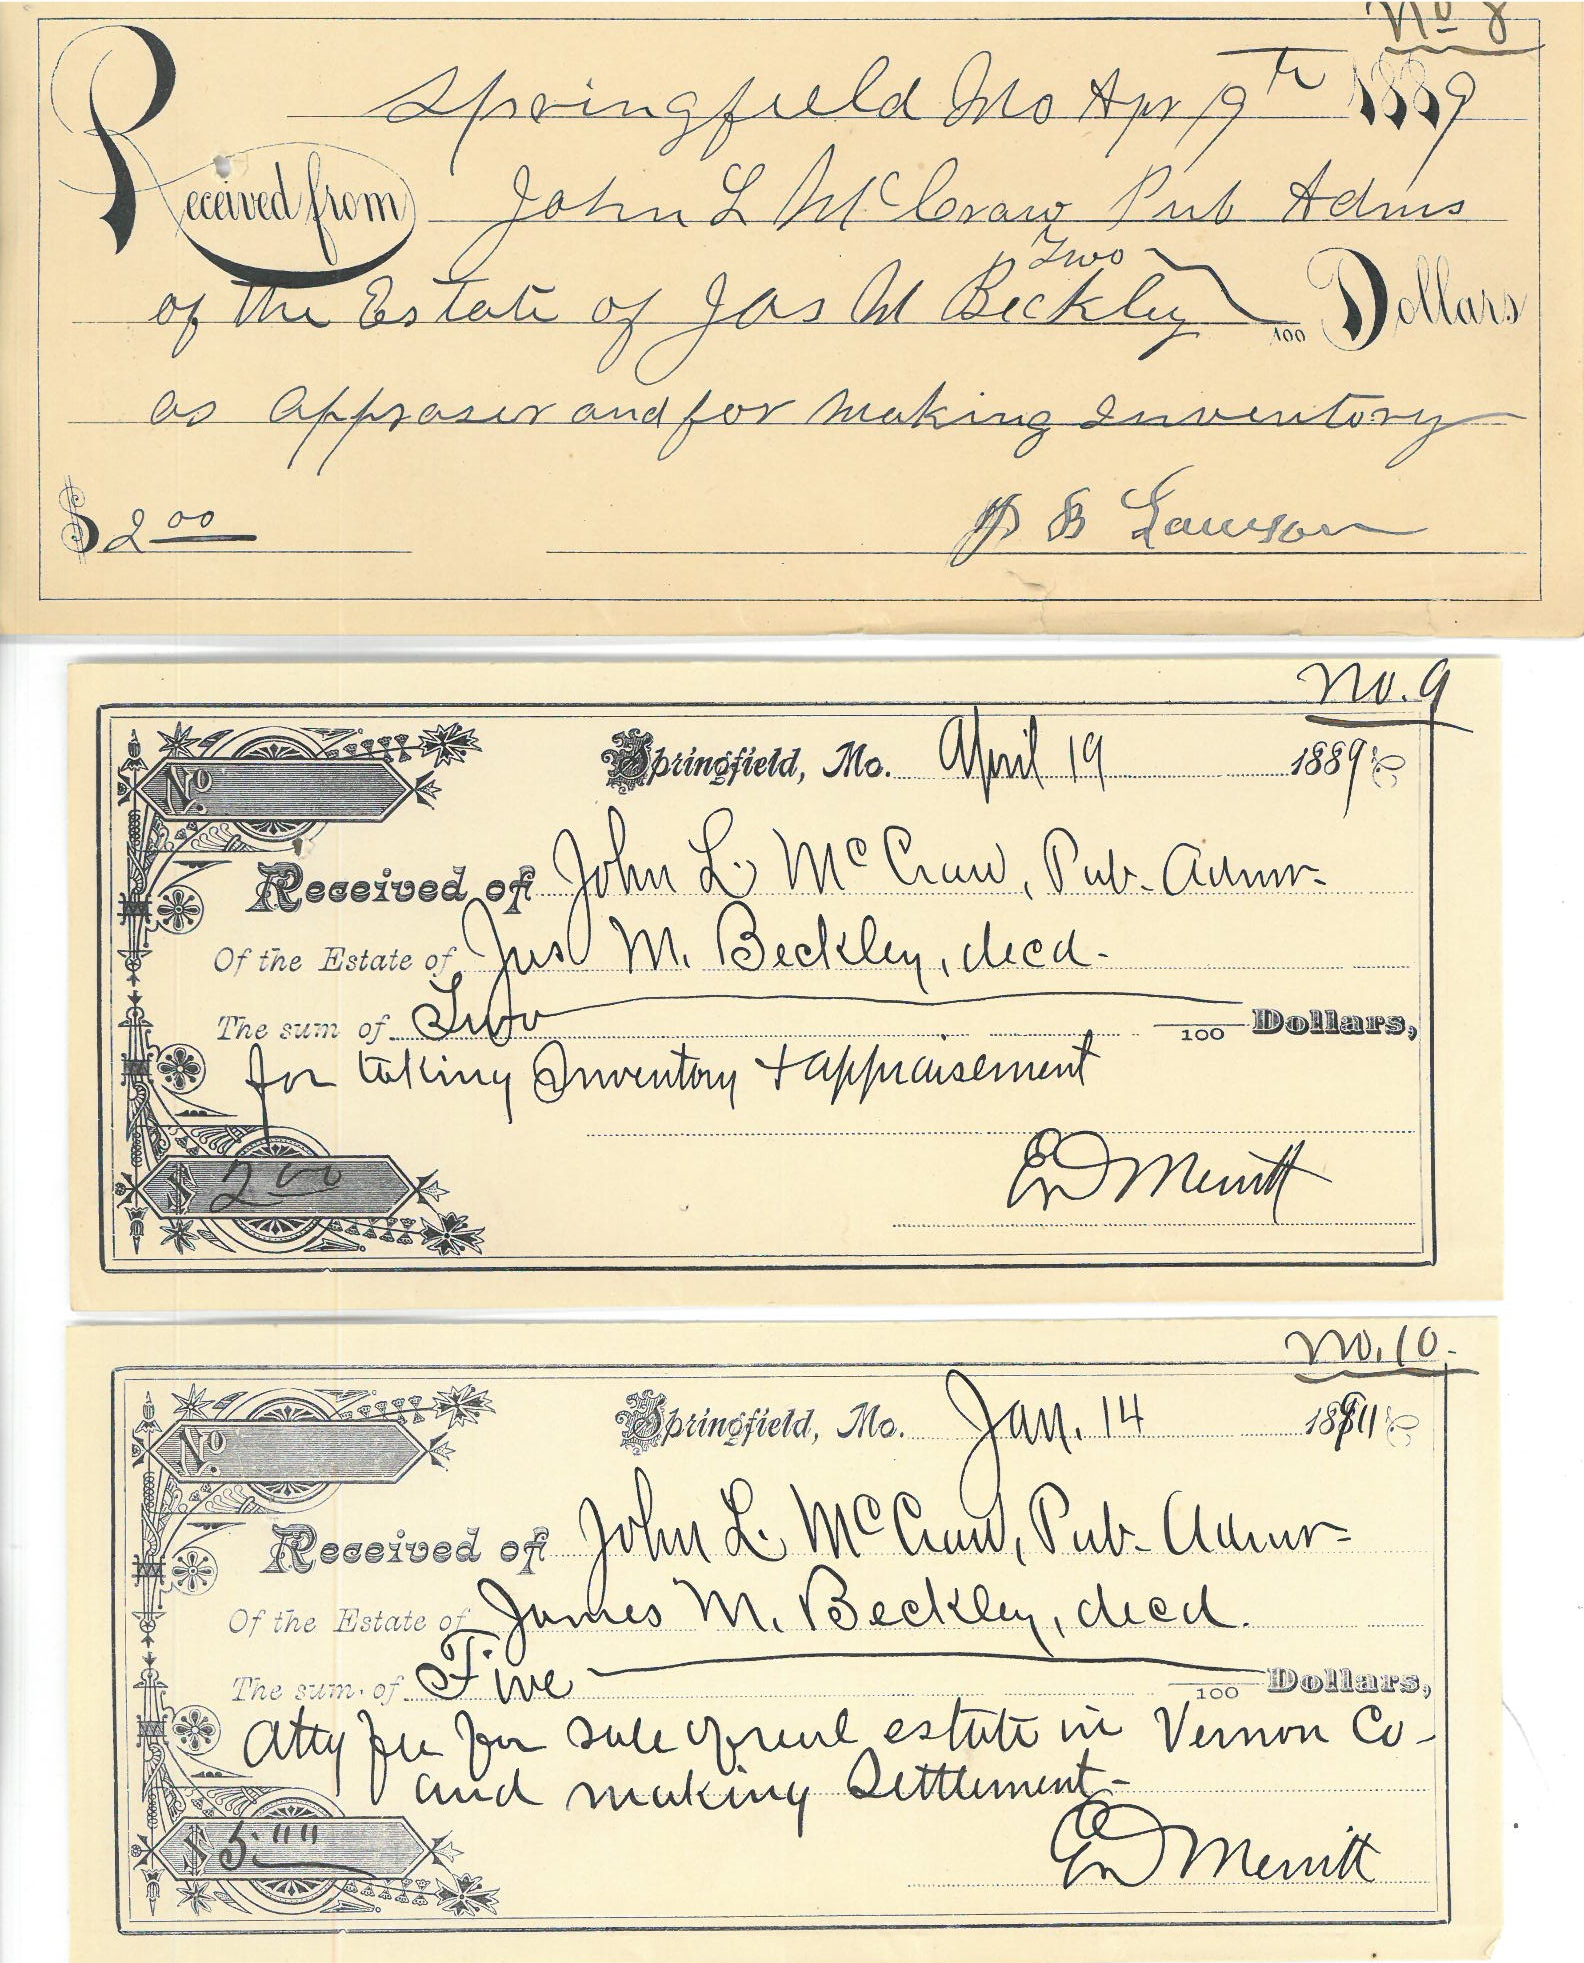 No 8
Springfield Mo Apr 19th 1889
Received from John L McCraw Pub Adms
Two
of the Estate of Jas M Beckley 100 Dollars
as appraser and for making Inventory
$ 2 00 B Lawson
No. 9
Springfield, Mo. April 19 1889
No.
Received of John L. McCraw, Pub. Admr.
Of the Estate of Jas M. Beckley, decd.
The sum of Two 100 Dollars,
for taking Inventory + appraisement
$ 2 00
ED Merritt
No. 10.
Springfield, Mo. Jan. 14 1891
No.
Received of John L. McCraw, Pub. Admr
Of the Estate of James M. Beckley, decd.
The sum of Five 100 Dollars,
Atty fee for sale of real estate in Vernon Co.
and making Settlement
$ 5.00
ED Merritt